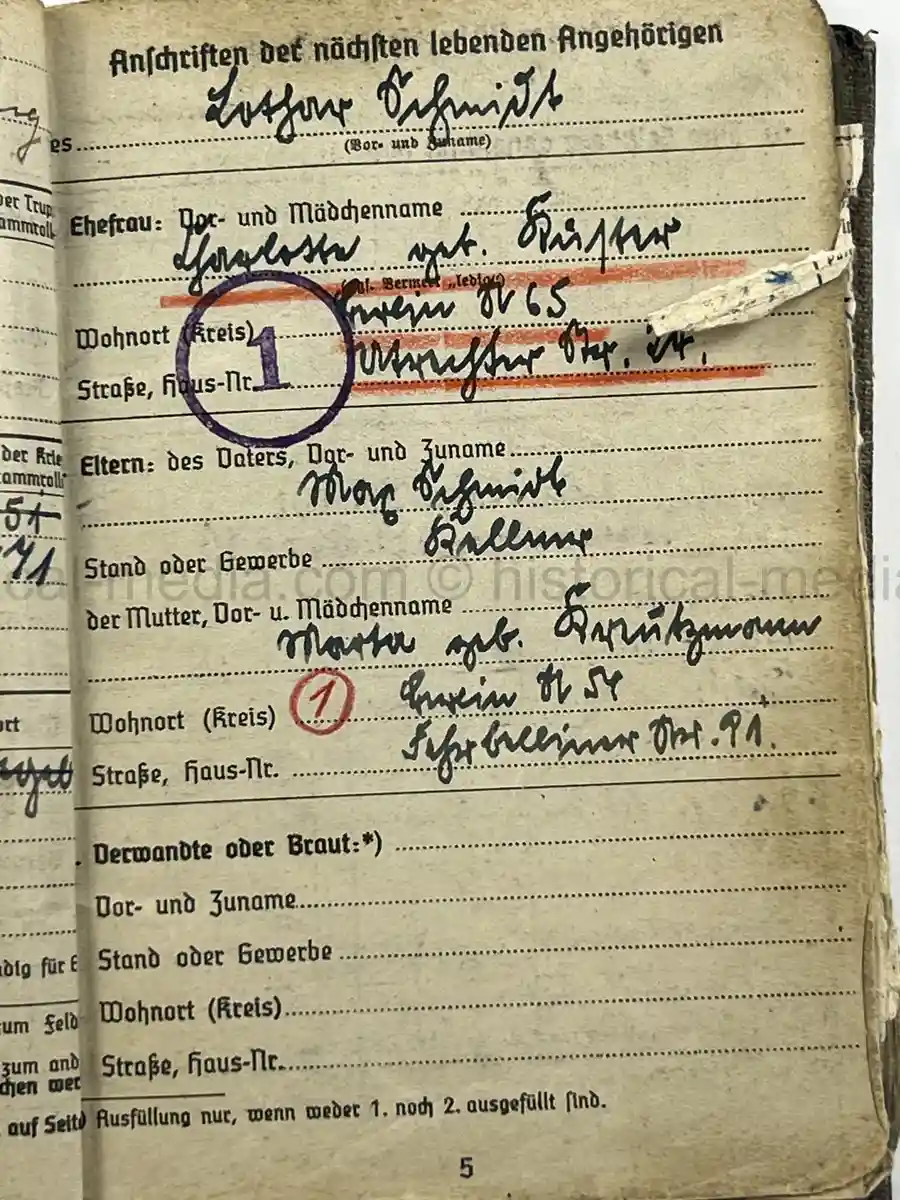 Anschriften der nächsten lebenden Angehörigen
Lothar Schmidt
es
(Vor- und Zuname)
Ehefrau: Vor- und Mädchenname
Charlotte geb. Kuster
(ggl. Vermerk „ledig“)
Berlin N 65
Wohnort (Kreis)
1
Utrechter Str. 24.
Straße, Haus-Nr.
Eltern: des Vaters, Vor- und Zuname
Max Schmidt
Kellner
Stand oder Gewerbe
der Mutter, Vor- u. Mädchenname
Marta geb. Kreutzmann
1
Berlin N 54
Wohnort (Kreis)
Fehrbelliner Str. 91.
Straße, Haus-Nr.
Verwandte oder Braut:*)
Vor- und Zuname
Stand oder Gewerbe
Wohnort (Kreis)
Straße, Haus-Nr.
Ausfüllung nur, wenn weder 1. noch 2. ausgefüllt sind.
5
der Trup
ammroll
der Krie
tammroll
51
71
ort
ndig für E
zum Feld
zum and
chen wer
auf Seite
cal-media.com © historical-media